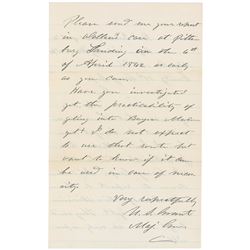 Please send me your report
in Wallace's case at Pitts-
burg Landing on the 6th
of April 1862 as early
as you can.
Have you investigated
yet the practicability of
getting into Bayou Macon
yet? I do not expect
to use that route but
want to know if it can
be used in case of neces-
sity
Very respectfully
U. S. Grant
Maj. Gen.